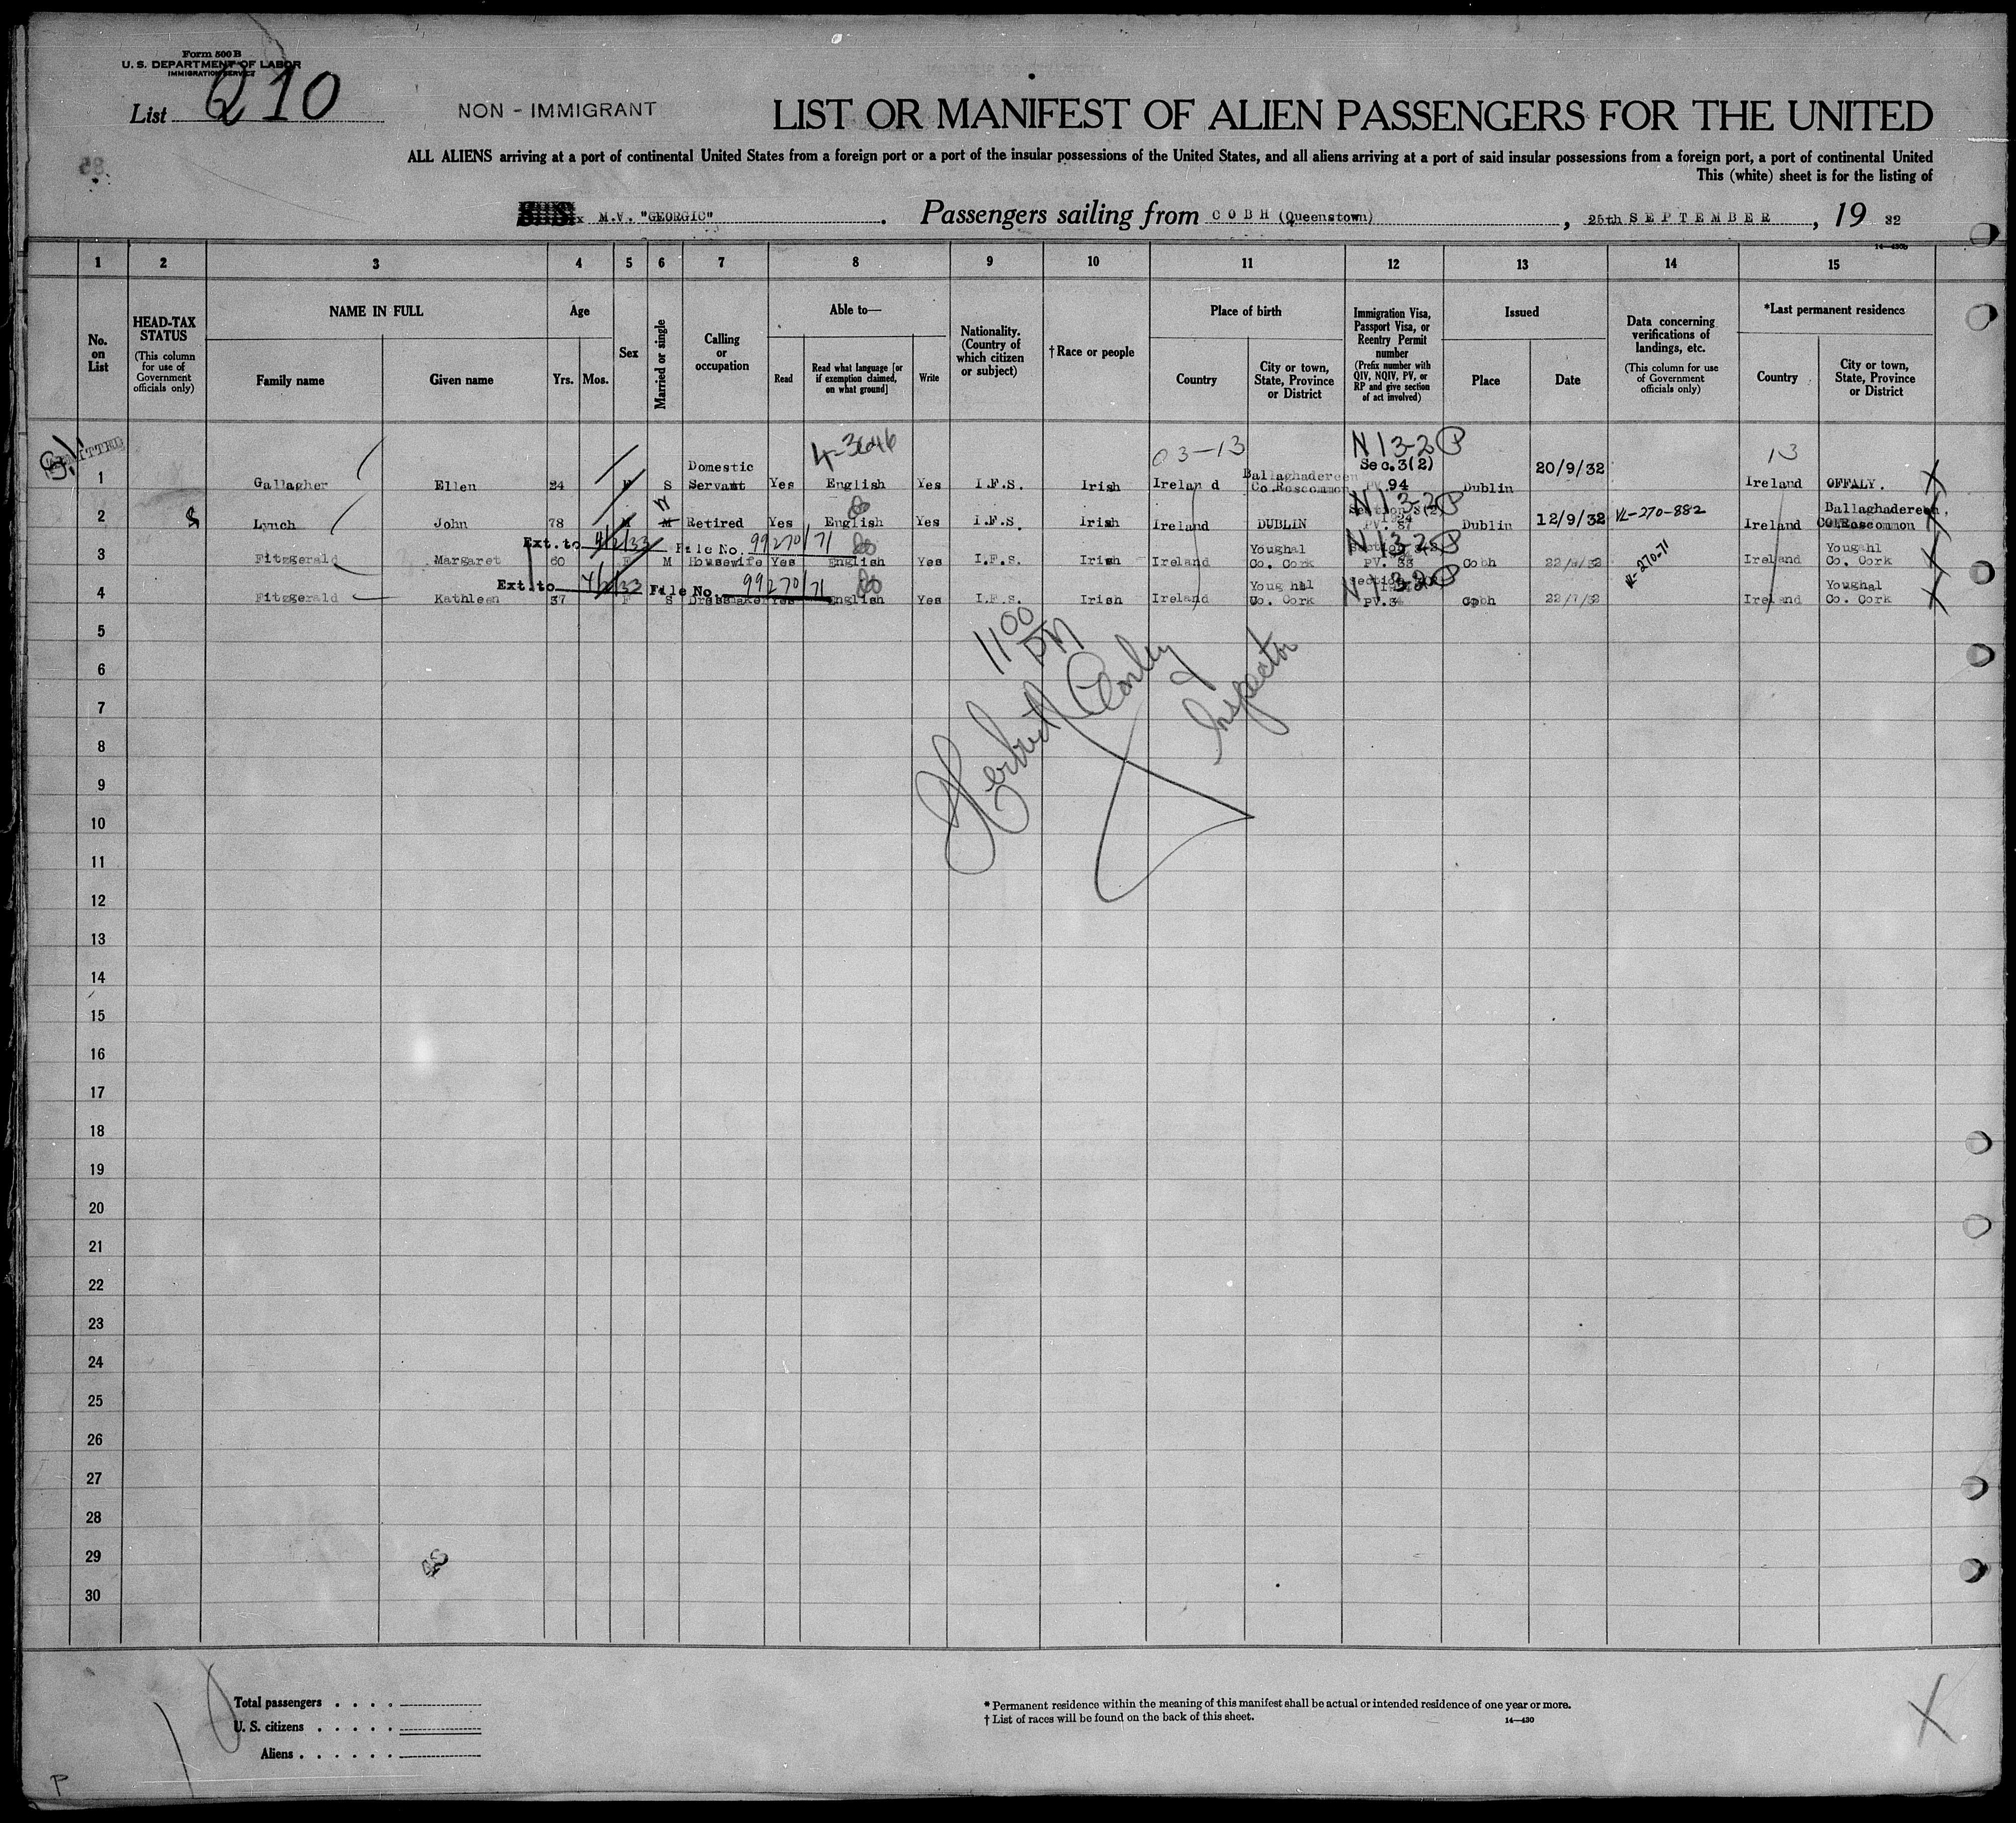 Form 500 B
U. S. DEPARTMENT OF LABOR
IMMIGRATION SERVICE
List 210
NON - IMMIGRANT
LIST OR MANIFEST OF ALIEN PASSENGERS FOR THE UNITED
ALL ALIENS arriving at a port of continental United States from a foreign port or a port of the insular possessions of the United States, and all aliens arriving at a port of said insular possessions from a foreign port, a port of continental United
This (white) sheet is for the listing of
M.V. "GEORGIC" . Passengers sailing from COBH (Queenstown) , 25th SEPTEMBER , 19 32
1 2 3 4 5 6 7 8 9 10 11 12 13 14 15
No. on List
HEAD-TAX STATUS
(This column for use of Government officials only)
NAME IN FULL
Family name
Given name
Age
Yrs. Mos.
Sex
Married or single
Calling or occupation
Able to—
Read
Read what language [or if exemption claimed, on what ground]
Write
Nationality. (Country of which citizen or subject)
† Race or people
Place of birth
Country
City or town, State, Province or District
Immigration Visa, Passport Visa, or Reentry Permit number
(Prefix number with QIV, NQIV, PV, or RP and give section of act involved)
Issued
Place
Date
Data concerning verifications of landings, etc.
(This column for use of Government officials only)
*Last permanent residence
Country
City or town, State, Province or District
ADMITTED
4-3646
03-13
N 13-2 P
13
1 Gallagher Ellen 24 F S Domestic Servant Yes English Yes I.F.S. Irish Ireland Ballaghadereen Co.Roscommon Sec.3(2) PV.94 Dublin 20/9/32 Ireland OFFALY.
N 13-2 P
2 Lynch John 78 M M Retired Yes English Yes I.F.S. Irish Ireland DUBLIN Dublin 12/9/32 VL-270-882 Ireland Ballaghadereen, Co.Roscommon
Ext. to 4/2/33 File No. 99270/71
N 13-2 P
3 Fitzgerald Margaret 60 F M Housewife Yes English Yes I.F.S. Irish Ireland Youghal Co. Cork PV. 33 Cobh Ireland Yougahl Co. Cork
Ext. to 4/2/33 File No. 99270/71
N 13-2 P
4 Fitzgerald Kathleen 37 F S Yes English Yes I.F.S. Irish Ireland Youghal Co. Cork PV.34 Cobh Ireland Youghal Co. Cork
5
6
7
8
9
10
11
12
13
14
15
16
17
18
19
20
21
22
23
24
25
26
27
28
29
30
11 00 PM
Inspector
Total passengers . . . .
U. S. citizens . . . . .
Aliens . . . . . .
* Permanent residence within the meaning of this manifest shall be actual or intended residence of one year or more.
† List of races will be found on the back of this sheet.
14—430
P